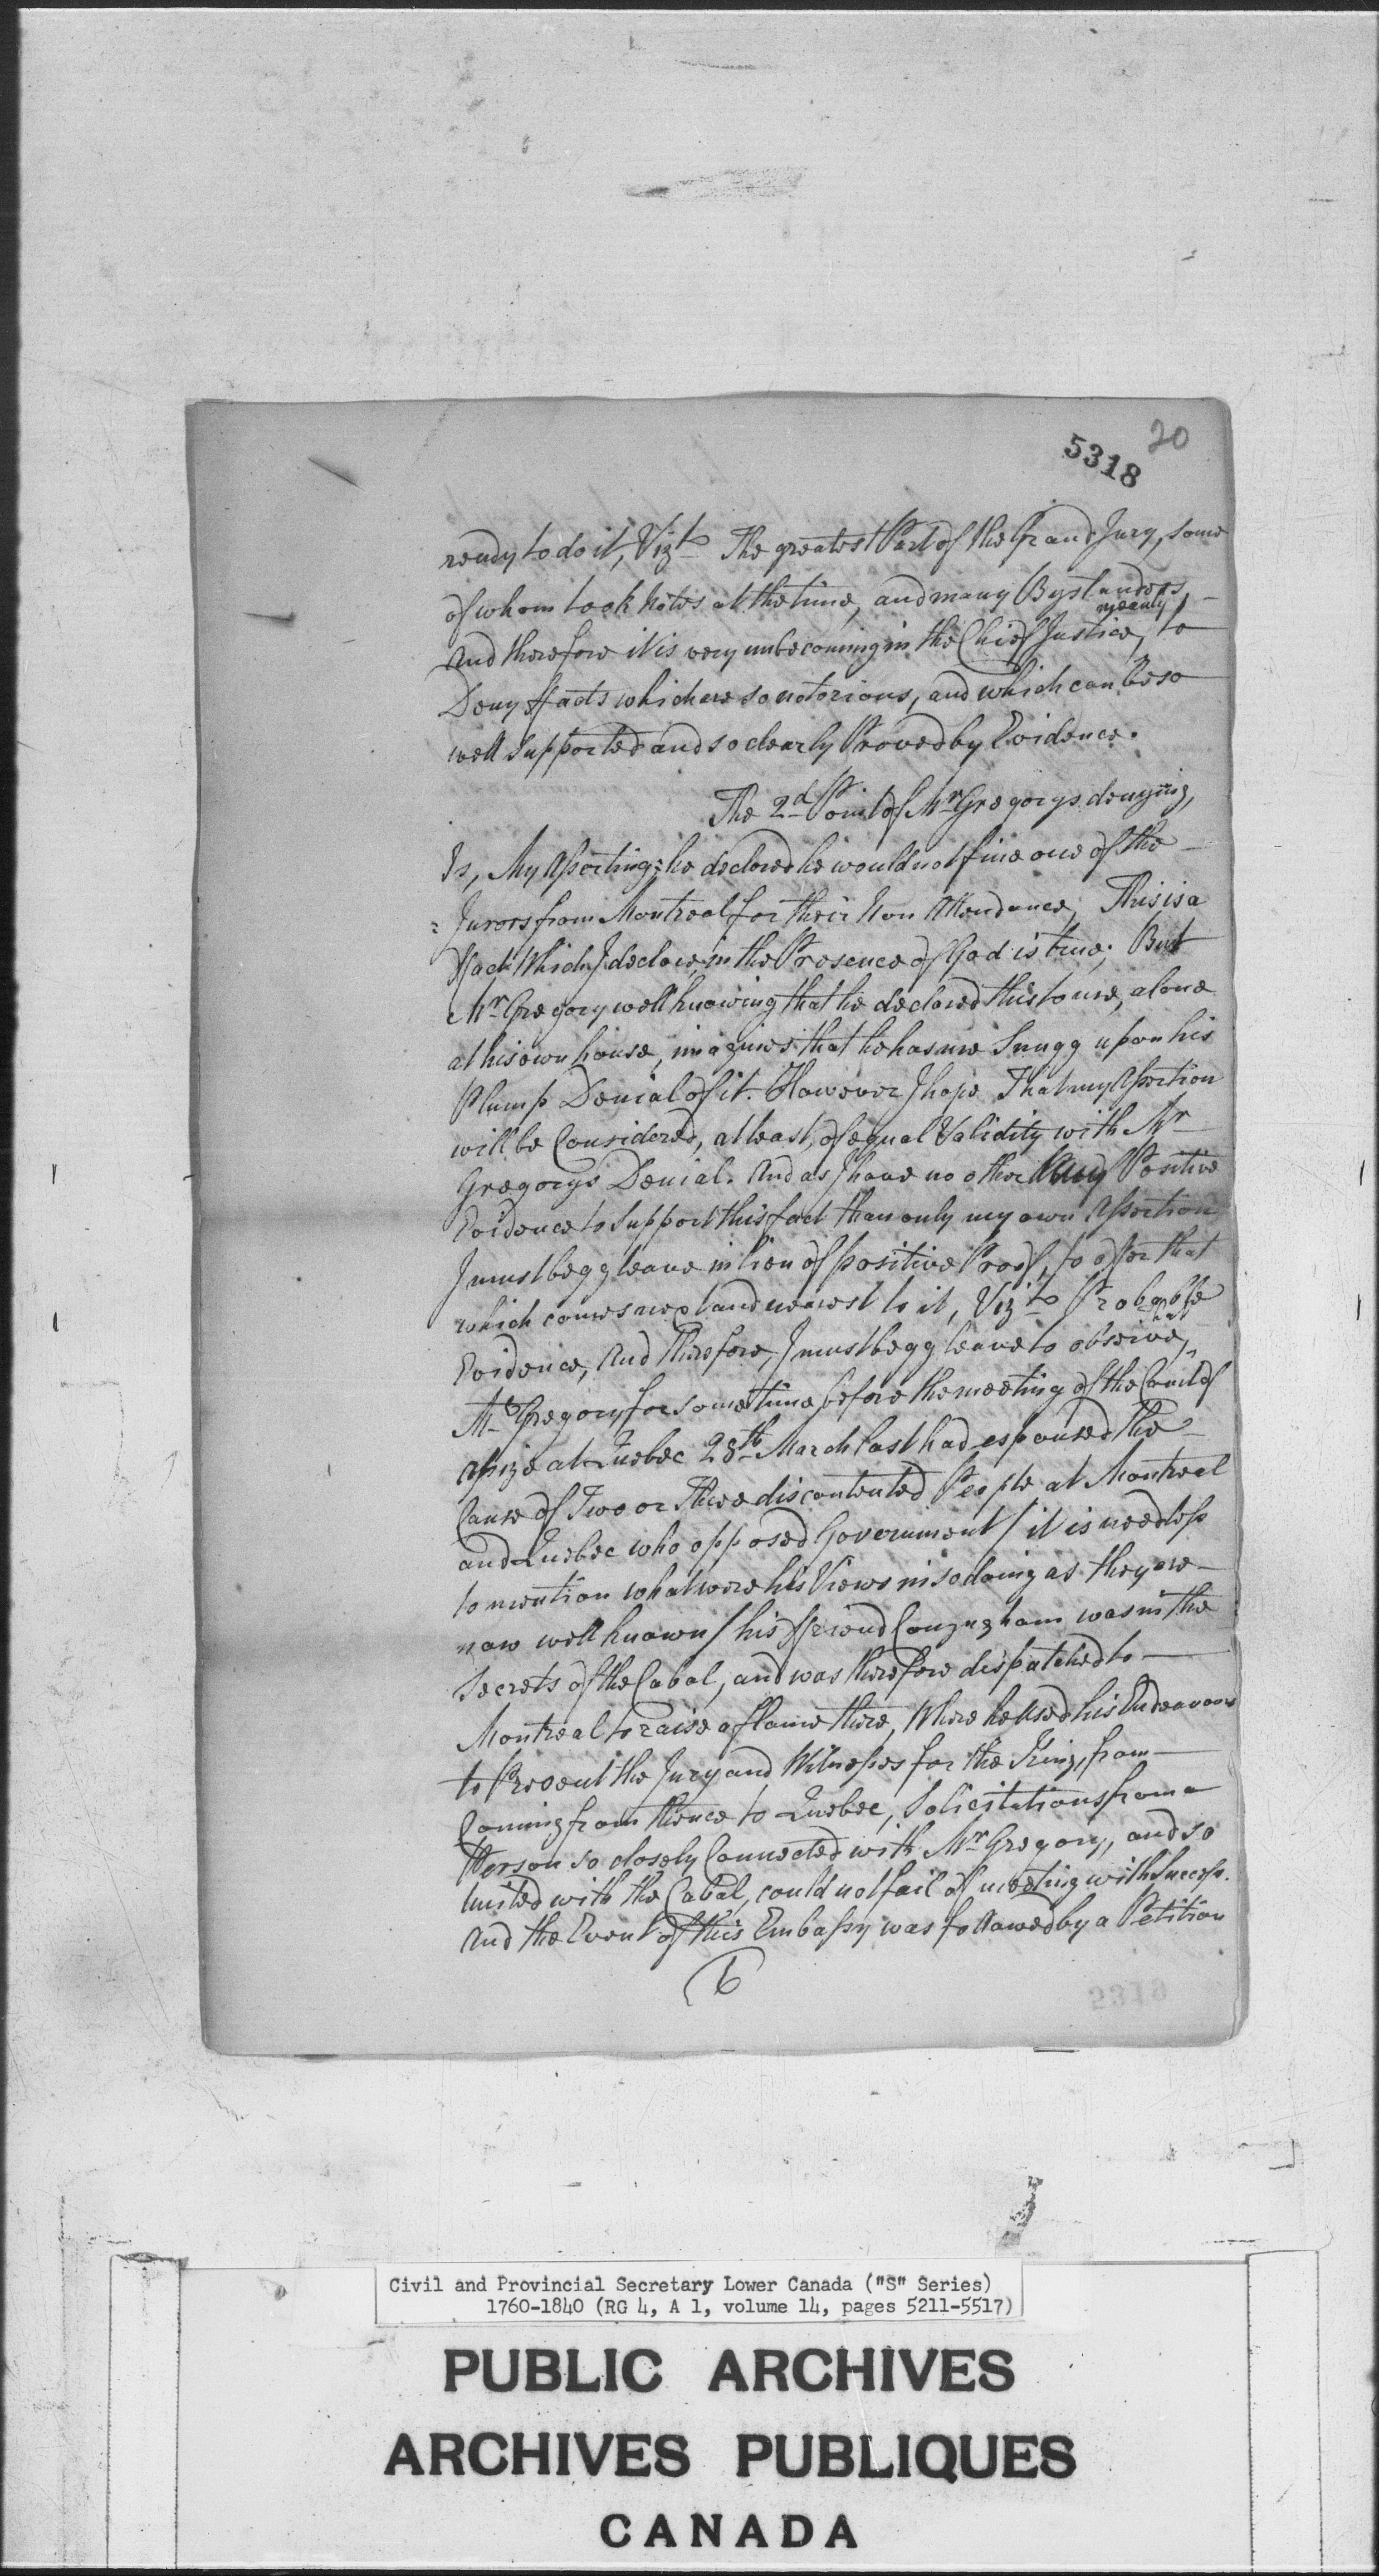 20
5318
ready to do it, Vizt. The greatest Part of the Grand Jury, some
of whom took Notes at the time, and many Bystanders, –
meanly
And therefore it is very unbecoming in the Chief Justice, to
Deny ffacts which are so notorious, and which can be so
well Supported and so clearly Proved by Evidence.
The 2d. Point of Mr. Gregorys denying,
Is, My Asserting; he declared he would not fine one of the –
Jurors from Montreal for their Non Attendance, This is a
ffact Which I declare in the Presence of God is true; But
Mr. Gregory well knowing that he declared this to me, alone
at his own house, imagines that he has me Snugg upon his
Plump Denial of it. However I hope That my Assertion
will be Considered, at least, of equal Validity with Mr
Gregorys Denial. And as I have no other Positive
Evidence to Support this fact than only my own Assertion
I must begg leave in lieu of positive Proof, to offer that
which comes next and nearest to it, Vizt. Probable
Evidence, And therefore, I must begg leave to observe,
that
Mr. Gregory for some time before the meeting of the Court of
Assize at Quebec 28th. March last had espoused The –
Cause of Two or Three discontented People at Montreal
and Quebec who opposed Government / it is needless
to mention what were his Views in so doing as they are –
now well known / his ffriend Conyngham was in the
Secrets of the Cabal, and was therefore dispatched to –
Montreal to raise a flame there, Where he Used his Endeavours
to Prevent the Jury and Witnesses for the King, from –
Coming from thence to Quebec, Solicitations from a
Person so closely Connected with Mr. Gregory, and so
United with the Cabal, could not fail of meeting with Success.
And the Event of this Embassy was followed by a Petition
6
Civil and Provincial Secretary Lower Canada ("S" Series)
1760-1840 (RG 4, A 1, volume 14, pages 5211-5517)
PUBLIC ARCHIVES
ARCHIVES PUBLIQUES
CANADA